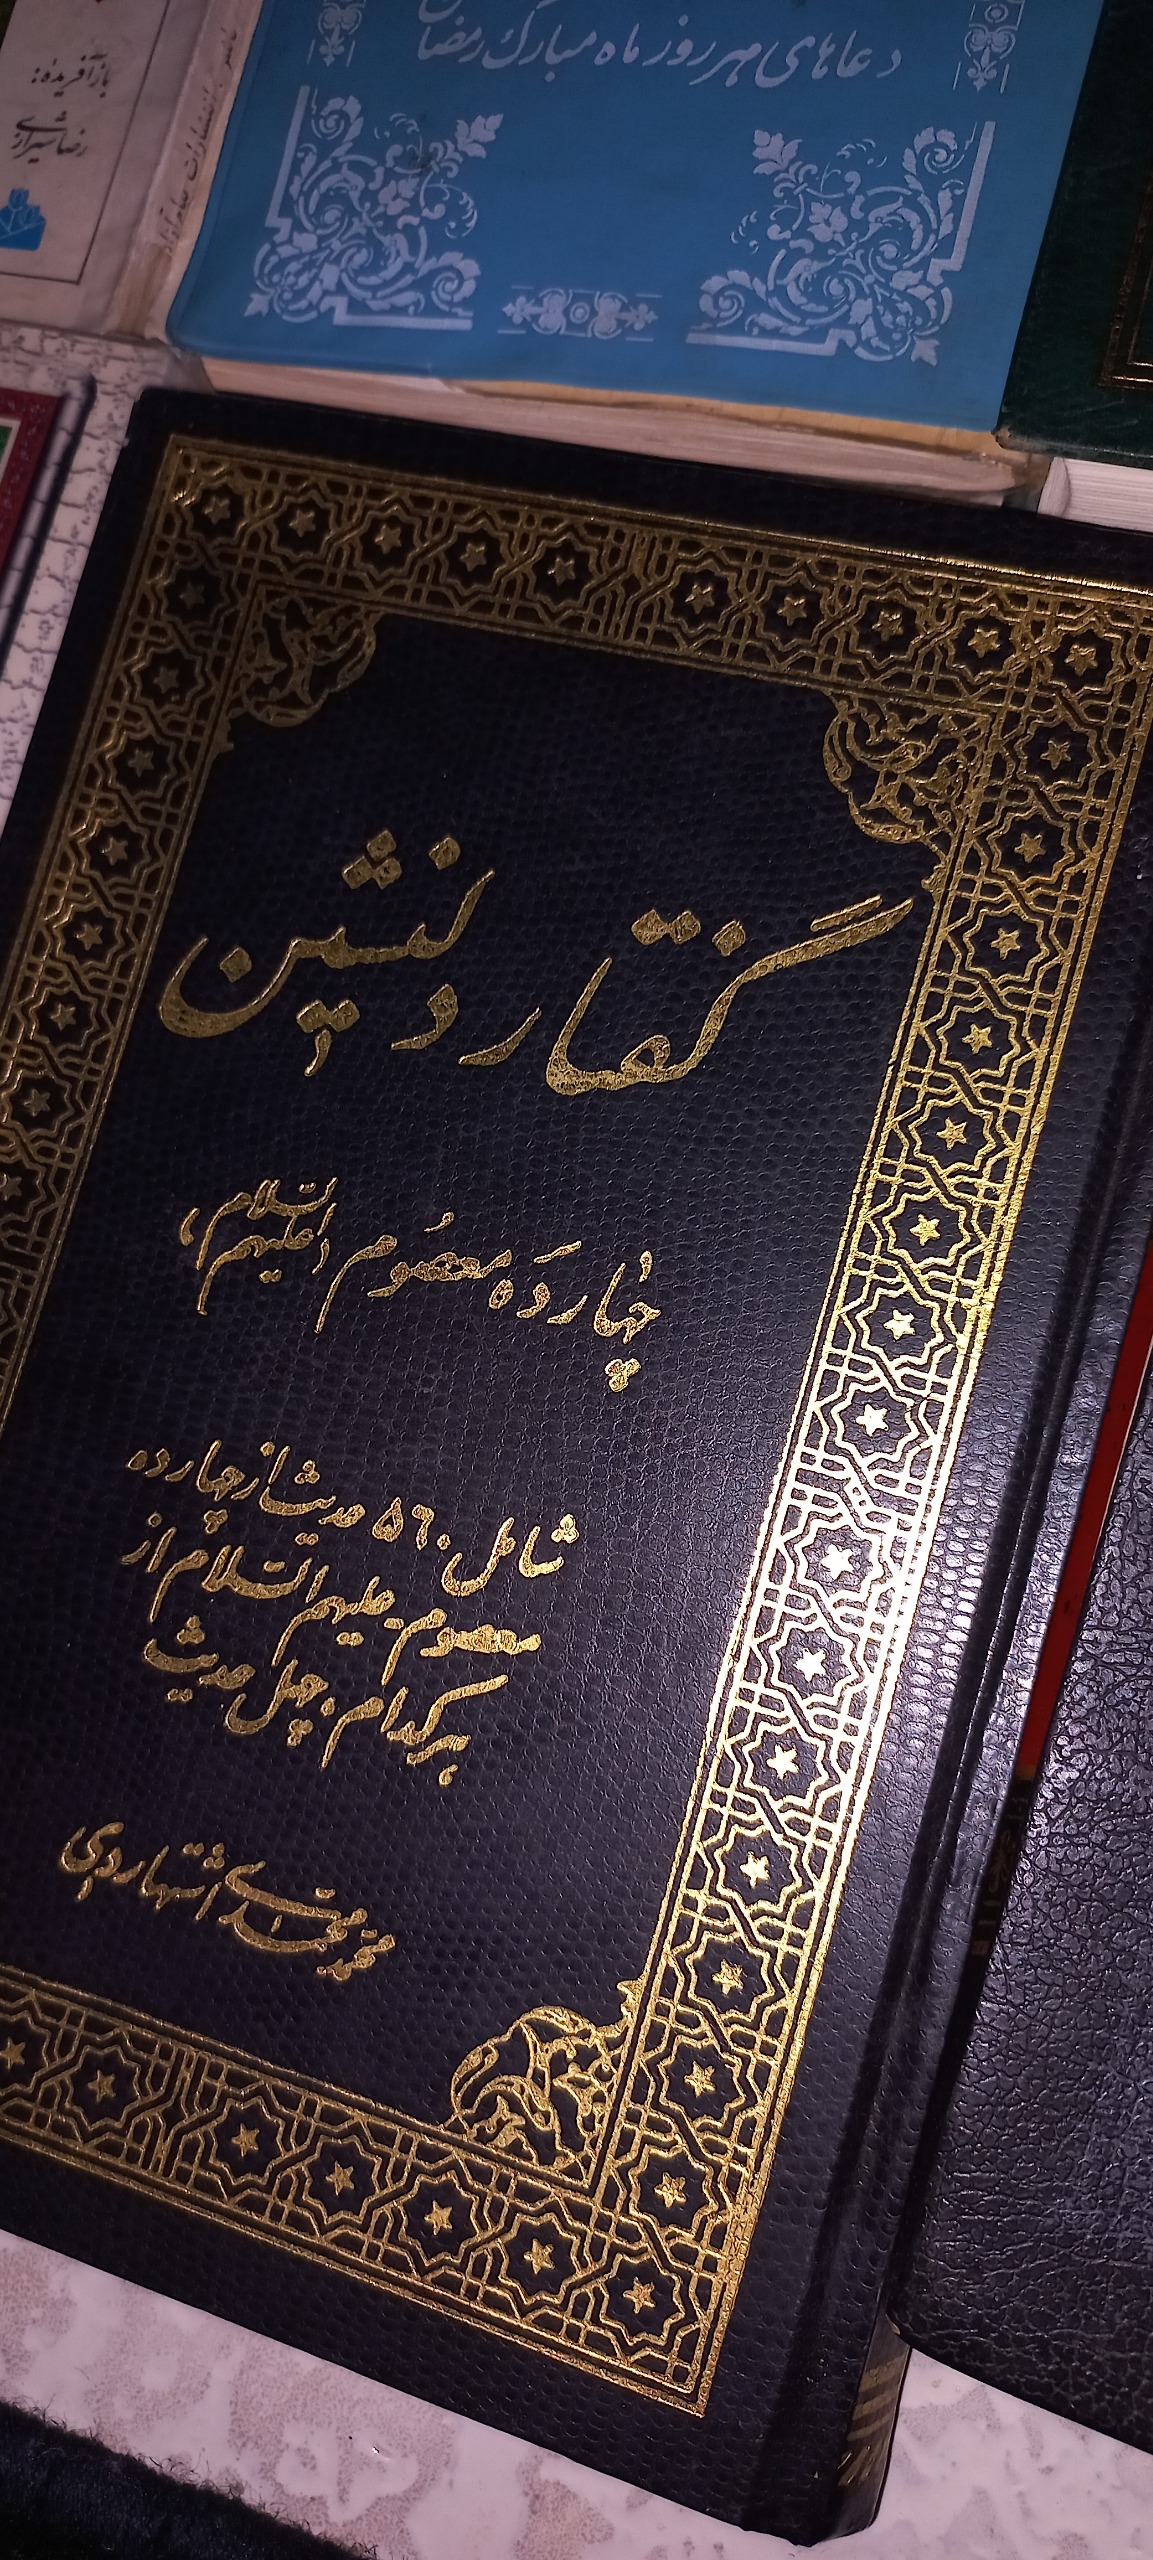 بازآفریده:
رضا شیرازی
دعاهای هر روز ماه مبارک رمضان
گفتار دلنشین
چهارده معصوم (علیهم السلام)
شامل ۵۶۰ حدیث از چهارده
معصوم علیهم السلام از
هر کدام، چهل حدیث
محمد محمدی اشتهاردی